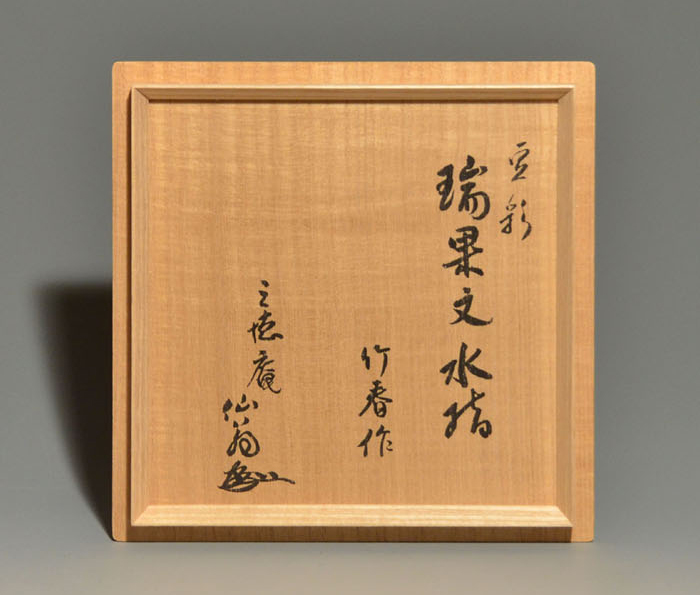 豆彩
瑞果文水指
竹春作
三徳庵
仙翁